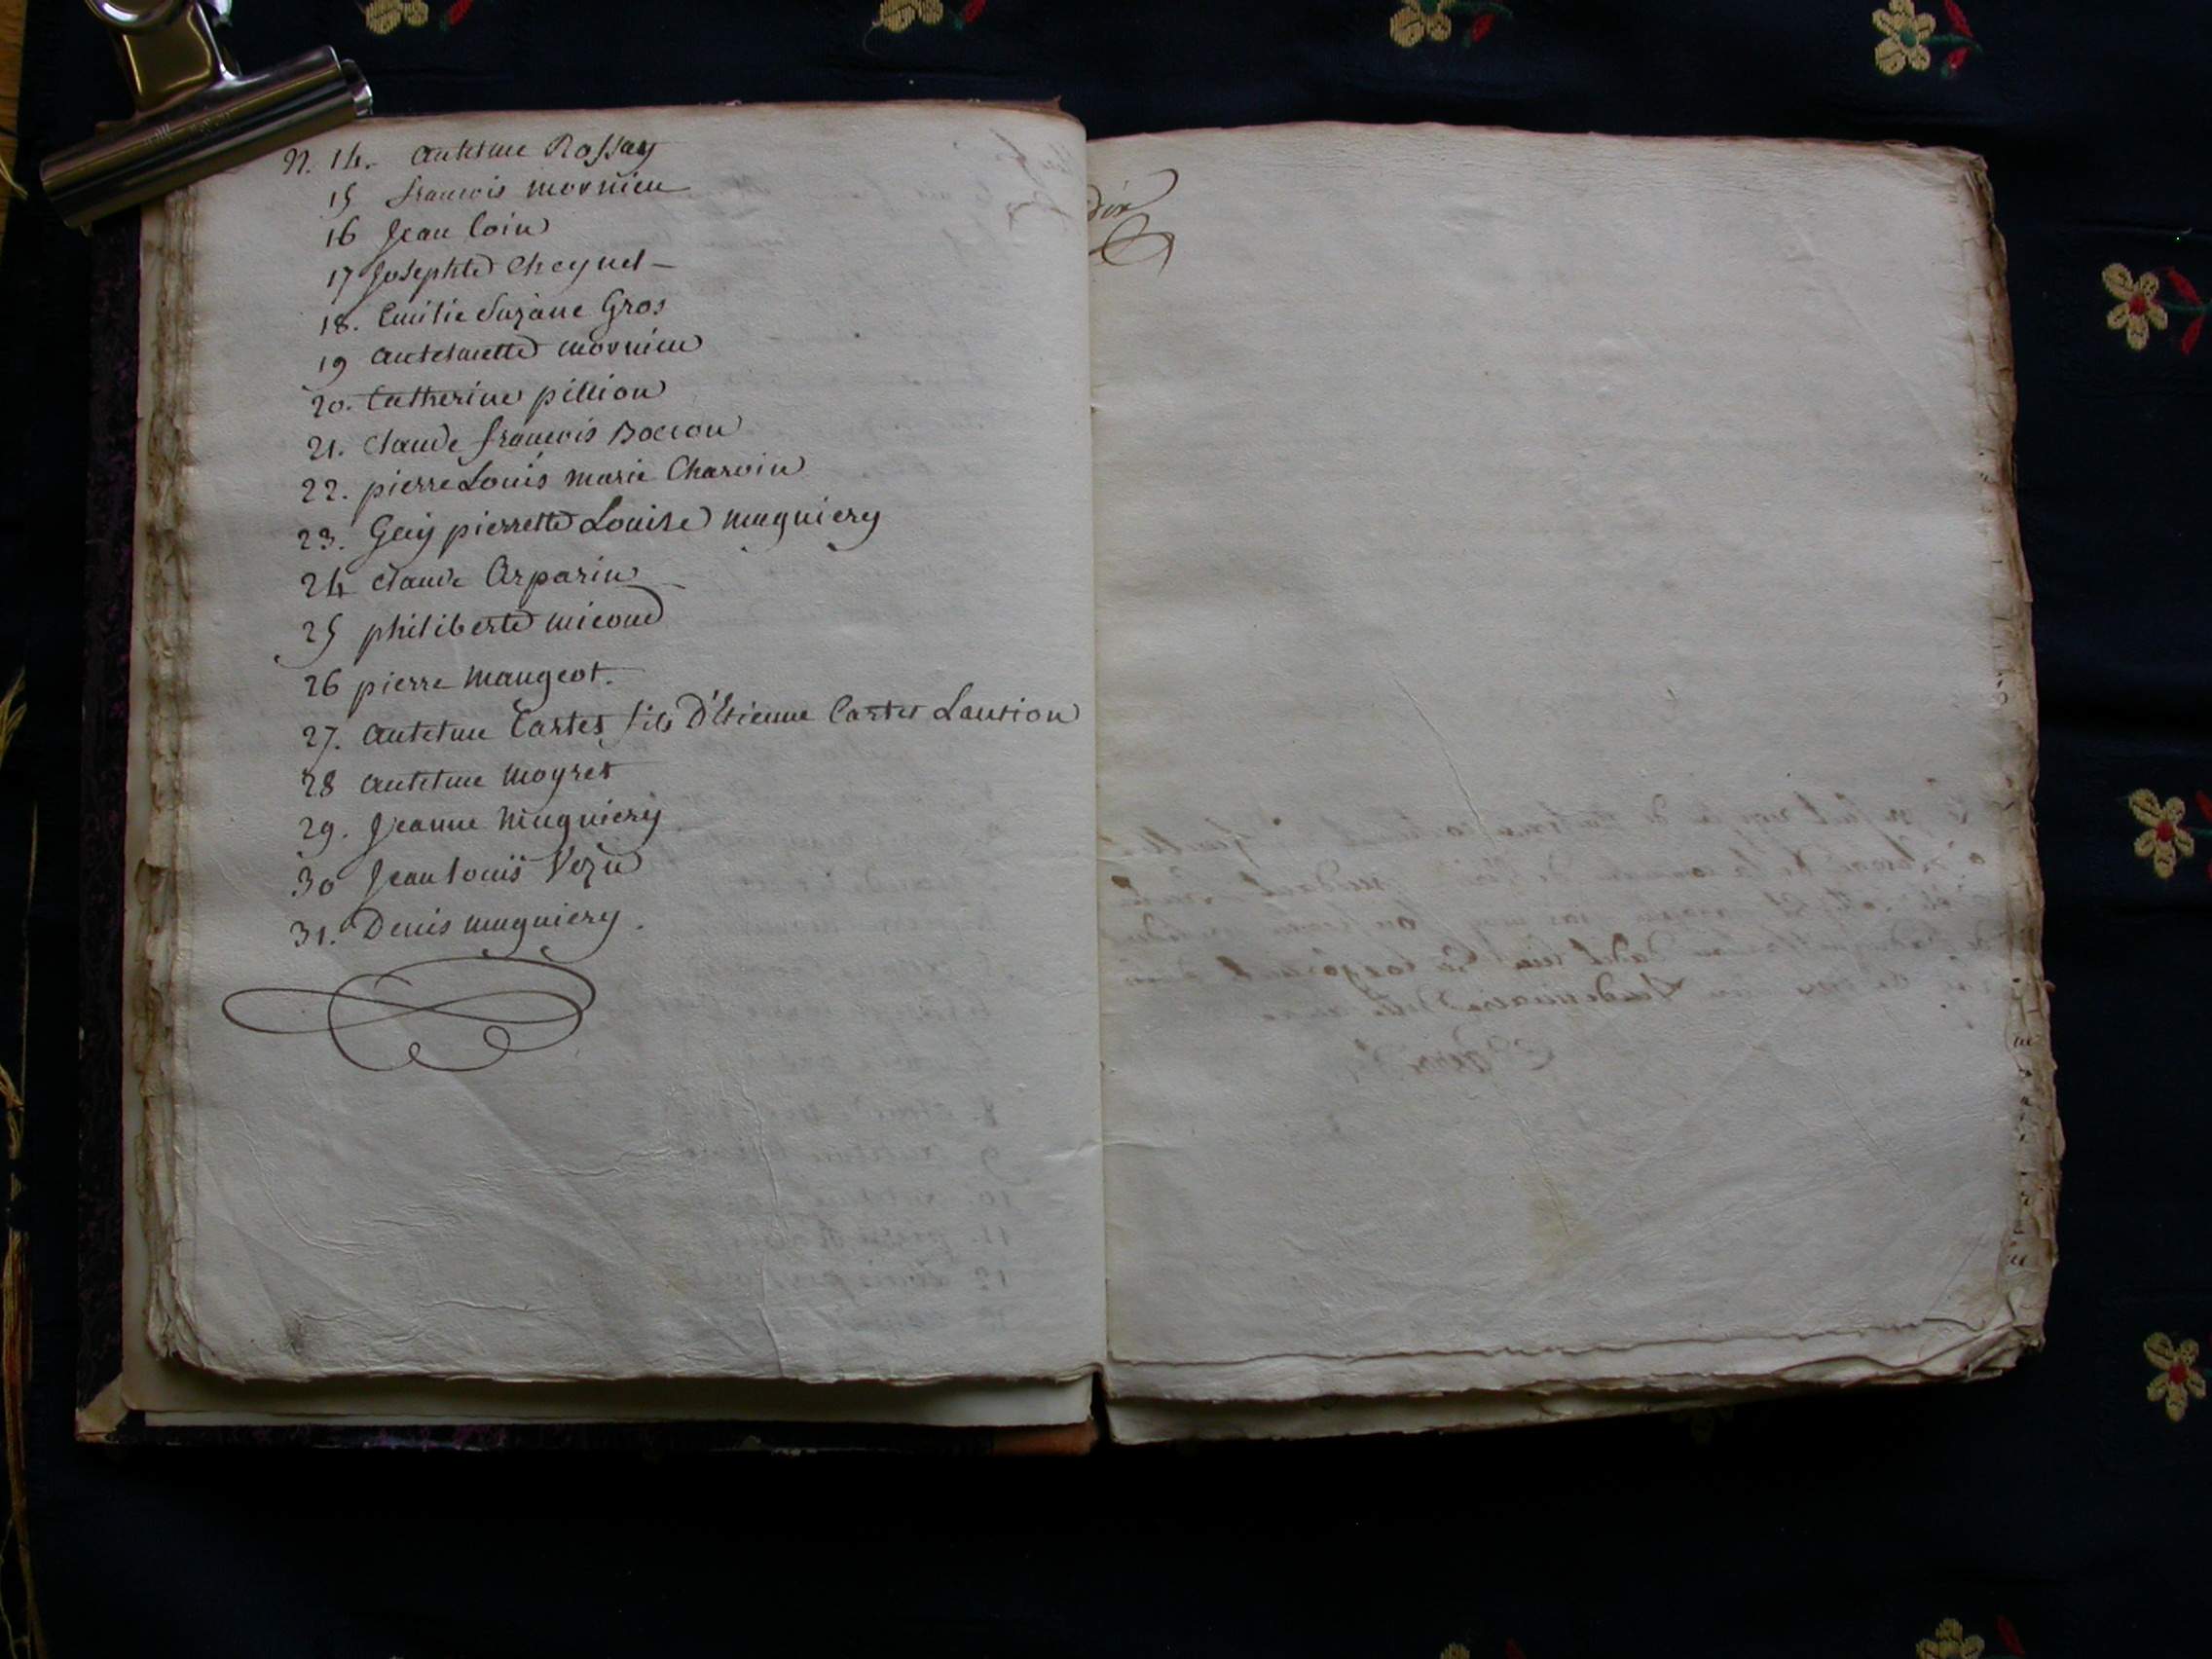 N. 14. Antelme Rossay
15 francois mornieu
16 Jean Coin
17 Josephte Cheynel
18. Emilie Suzane Gros
19 Antelmette mornieu
20. Catherine pillion
21. Claude francois Boccon
22. pierre Louis marie Charvin
23. Guy pierrette Louise mugniery
24 Claude Arparin
25 philiberte micoud
26 pierre Maugeot.
27. Antelme Carter fils D'Etienne Carter Lantion
28 Antelme Moyret
29. Jeanne Mugniery
30 Jean Louis Vezu
31. Denis mugniery.
dix